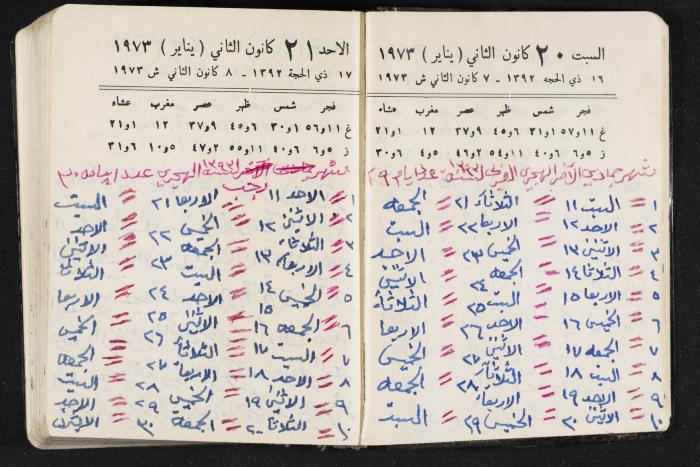 السبت ٢٠ كانون الثاني ( يناير ) ١٩٧٣
١٦ ذي الحجه ١٣٩٢ - ٧ كانون الثاني ش ١٩٧٣
فجر شمس ظهر عصر مغرب عشاء
غ ١١و٥٧ ١و٣١ ٦و٤٥ ٩و٣٧ ١٢ ١و٢١
ز ٥و٦ ٦و٤٠ ١١و٥٤ ٢و٤٦ ٥و٤ ٦و٣٠
شهر جمادي الآخر الهجري ١٣٩٣ ٢٩
١ = السبت ١١ = الثلاثاء ٢١ = الجمعه
٢ = الاحد ١٢ = الاربعا ٢٢ = السبت
٣ = الاثنين ١٣ = الخميس ٢٣ = الاحد
٤ = الثلاثا ١٤ = الجمعه ٢٤ = الاثنين
٥ = الاربعا ١٥ = السبت ٢٥ = الثلاثاء
٦ = الخميس ١٦ = الاحد ٢٦ = الاربعا
٧ = الجمعه ١٧ = الاثنين ٢٧ = الخميس
٨ = السبت ١٨ = الثلاثاء ٢٨ = الجمعه
٩ = الاحد ١٩ = الاربعا
١٠ = الاثنين ٢٠ = الخميس ٢٩ = السبت
الاحد ٢١ كانون الثاني ( يناير ) ١٩٧٣
١٧ ذي الحجة ١٣٩٢ - ٨ كانون الثاني ش ١٩٧٣
فجر شمس ظهر عصر مغرب عشاء
غ ١١و٥٦ ١و٣٠ ٦و٤٥ ٩و٣٧ ١٢ ١و٢١
ز ٥و٦ ٦و٤٠ ١١و٥٥ ٢و٤٧ ٥و١٠ ٦و٣١
شهر رجب ١٣٩٣ الهجري عدد ايامه ٣٠
١ = الاحد ١١ = الاربعا ٢١ = السبت
٢ = الاثنين ١٢ = الخميس ٢٢ = الاحد
٣ = الثلاثاء ١٣ = الجمعه ٢٣ = الاثنين
٤ = الاربعا ١٤ = السبت ٢٤ = الثلاثا
٥ = الخميس ١٥ = الاحد ٢٥ = الاربعا
٦ = الجمعه ١٦ = الاثنين ٢٦ = الخميس
٧ = السبت ١٧ = الثلاثا ٢٧ = الجمعه
٨ = الاحد ١٨ = الاربعا ٢٨ = السبت
٩ = الاثنين ١٩ = الخميس ٢٩ = الاحد
١٠ = الثلاثا ٢٠ = الجمعة ٣٠ = الاثنين